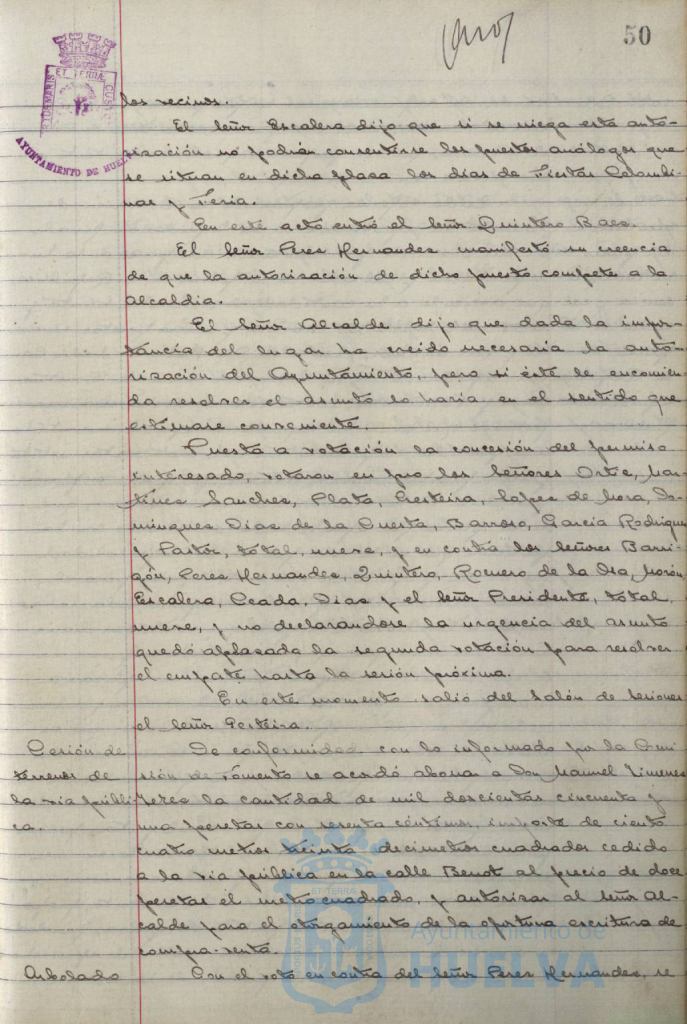 50
ET TERRA
AYUNTAMIENTO DE HUELVA
los vecinos.
El Señor Escalera dijo que si se niega esta auto-
rización no podrán consentirse los puestos análogos que
se situan en dicha plaza los días de Fiestas Colombi-
nas y Feria.
En este acto entró el Señor Quintero Baez.
El Señor Perez Hernandez manifestó su creencia
de que la autorización de dicho puesto compete a la
Alcaldia.
El Señor Alcalde dijo que dada la impor-
tancia del lugar ha creido necesaria la auto-
rización del Ayuntamiento, pero si éste le encomien-
da resolver el asunto lo haría en el sentido que
estimase conveniente.
Puesta a votación la concesión del permiso
interesado, votaron en pro los Señores Ortiz, Mar-
tinez Sanchez, Plata, Terteira, Lopez de Mora, Do-
minguez Diaz de la Cuesta, Barroso, Garcia Rodriguez
y Pastor, total, nueve, y en contra los Señores Barri-
gón, Perez Hernandez, Quintero, Romero de la Osa, Morón,
Escalera, Ceada, Diaz y el Señor Presidente, total,
nueve, y no declarandose la urgencia del asunto
quedó aplazada la segunda votación para resolver
el empate hasta la sesión próxima.
En este momento salió del Salón de Sesiones
el Señor Terteira.
Cesión de
terrenos de
la via públi-
ca.
De conformidad con lo informado por la Comi-
sión de Fomento se acordó abonar a Don Manuel Jimenez
Perez la cantidad de mil doscientas cincuenta y
una pesetas con sesenta céntimos, importe de ciento
cuatro metros treinta decimetros cuadrados cedido
a la via pública en la calle Benot al precio de doce
pesetas el metro cuadrado, y autorizar al Señor Al-
calde para el otorgamiento de la oportuna escritura de
compra-venta.
Arbolado
Con el voto en contra del Señor Perez Hernandez, se
Ayuntamiento de
HUELVA